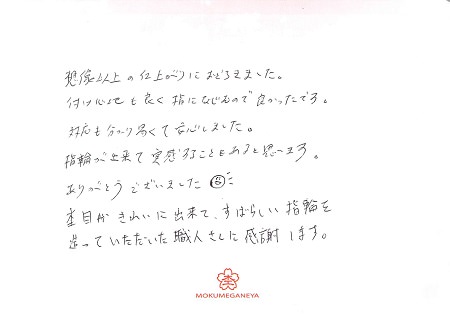 想像以上の仕上がりにおどろきました。
付け心地も良く指になじむので良かったです。
対応も分かり易くて安心しました。
指輪が出来て実感することもあると思います。
ありがとうございました
杢目がきれいに出来て、すばらしい指輪を
造っていただいた職人さんに感謝します。
MOKUMEGANEYA